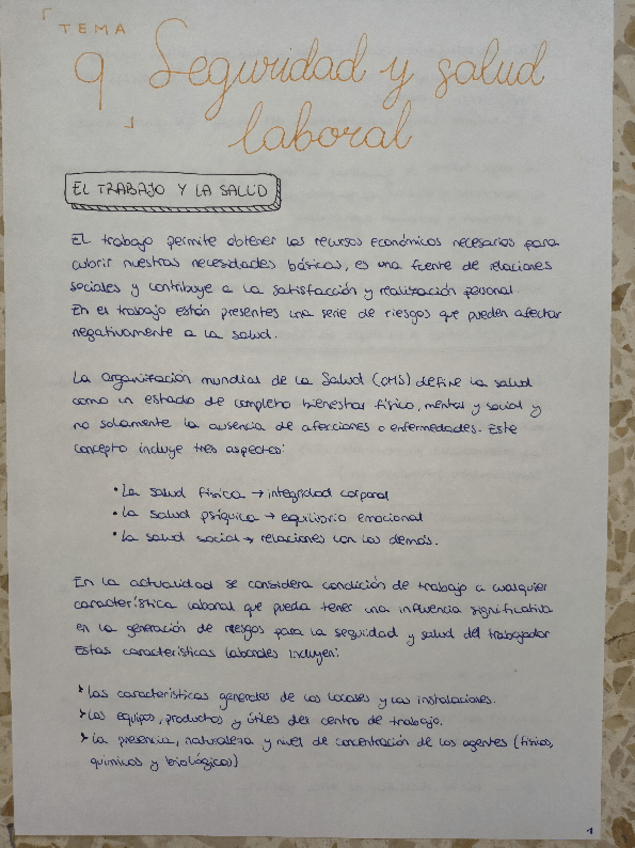 TEMA
9 Seguridad y salud
laboral
EL TRABAJO Y LA SALUD
El trabajo permite obtener los recursos económicos necesarios para
cubrir nuestras necesidades básicas, es una fuente de relaciones
sociales y contribuye a la satisfacción y realización personal.
En el trabajo están presentes una serie de riesgos que pueden afectar
negativamente a la salud.
La organización mundial de la Salud (OMS) define la salud
como un estado de completo bienestar físico, mental y social y
no solamente la ausencia de afecciones o enfermedades. Este
concepto incluye tres aspectos:
• La salud física → integridad corporal
• La salud psíquica → equilibrio emocional
• La salud social → relaciones con los demás.
En la actualidad se considera condición de trabajo a cualquier
característica laboral que pueda tener una influencia significativa
en la generación de riesgos para la seguridad y salud del trabajador
Estas características laborales incluyen:
➤ Las características generales de los locales y las instalaciones.
➤ Los equipos, productos y útiles del centro de trabajo.
➤ La presencia, naturaleza y nivel de concentración de los agentes (físicos,
químicos y biológicos)
1